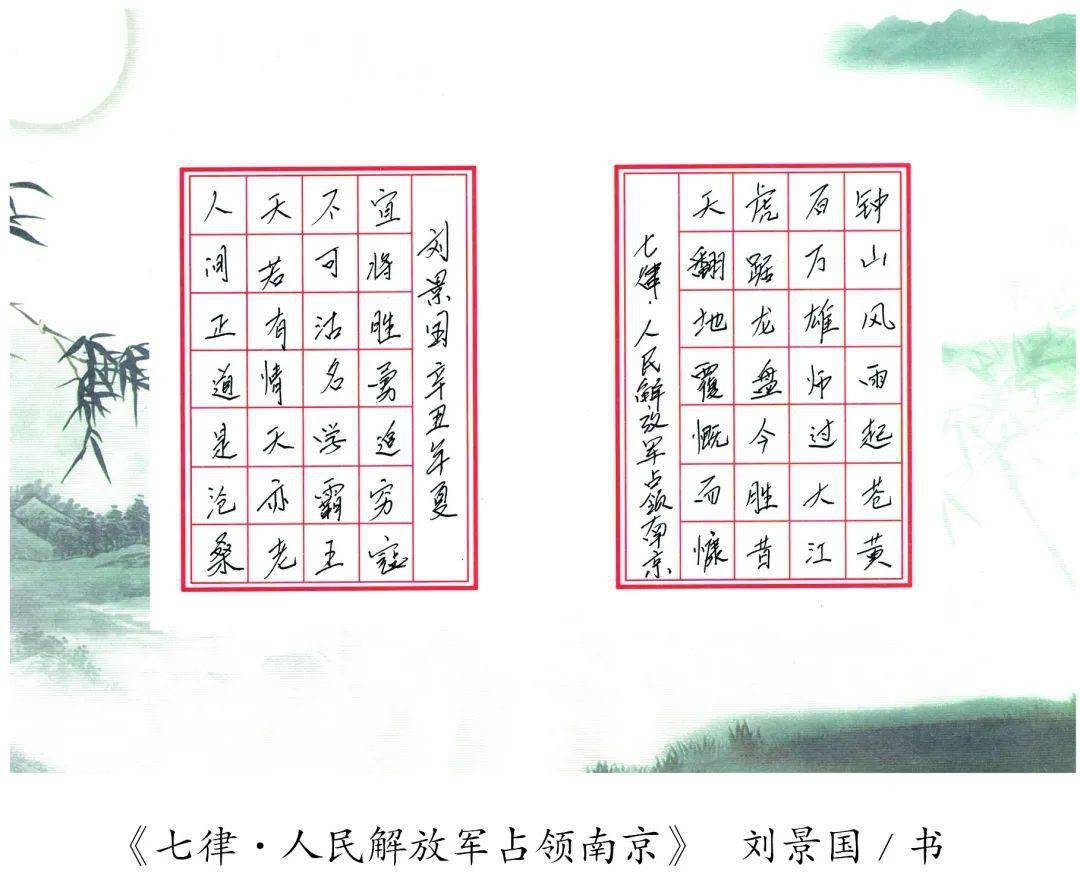 钟山风雨起苍黄
百万雄师过大江
虎踞龙盘今胜昔
天翻地覆慨而慷
七律·人民解放军占领南京
刘景国辛丑年夏
宜将胜勇追穷寇
不可沽名学霸王
天若有情天亦老
人间正道是沧桑
《七律·人民解放军占领南京》 刘景国/书